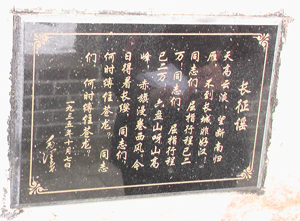 长征谣
天高云淡 望断南归
雁 不到长城非好汉
同志们 屈指行程已二
万 同志们 屈指行程
已二万 六盘山呀山高
峰 赤旗漫卷西风 今
日得着长缨 同志们
何时缚住苍龙? 同志
们 何时缚住苍龙?
一九三五年十月七日
毛泽东